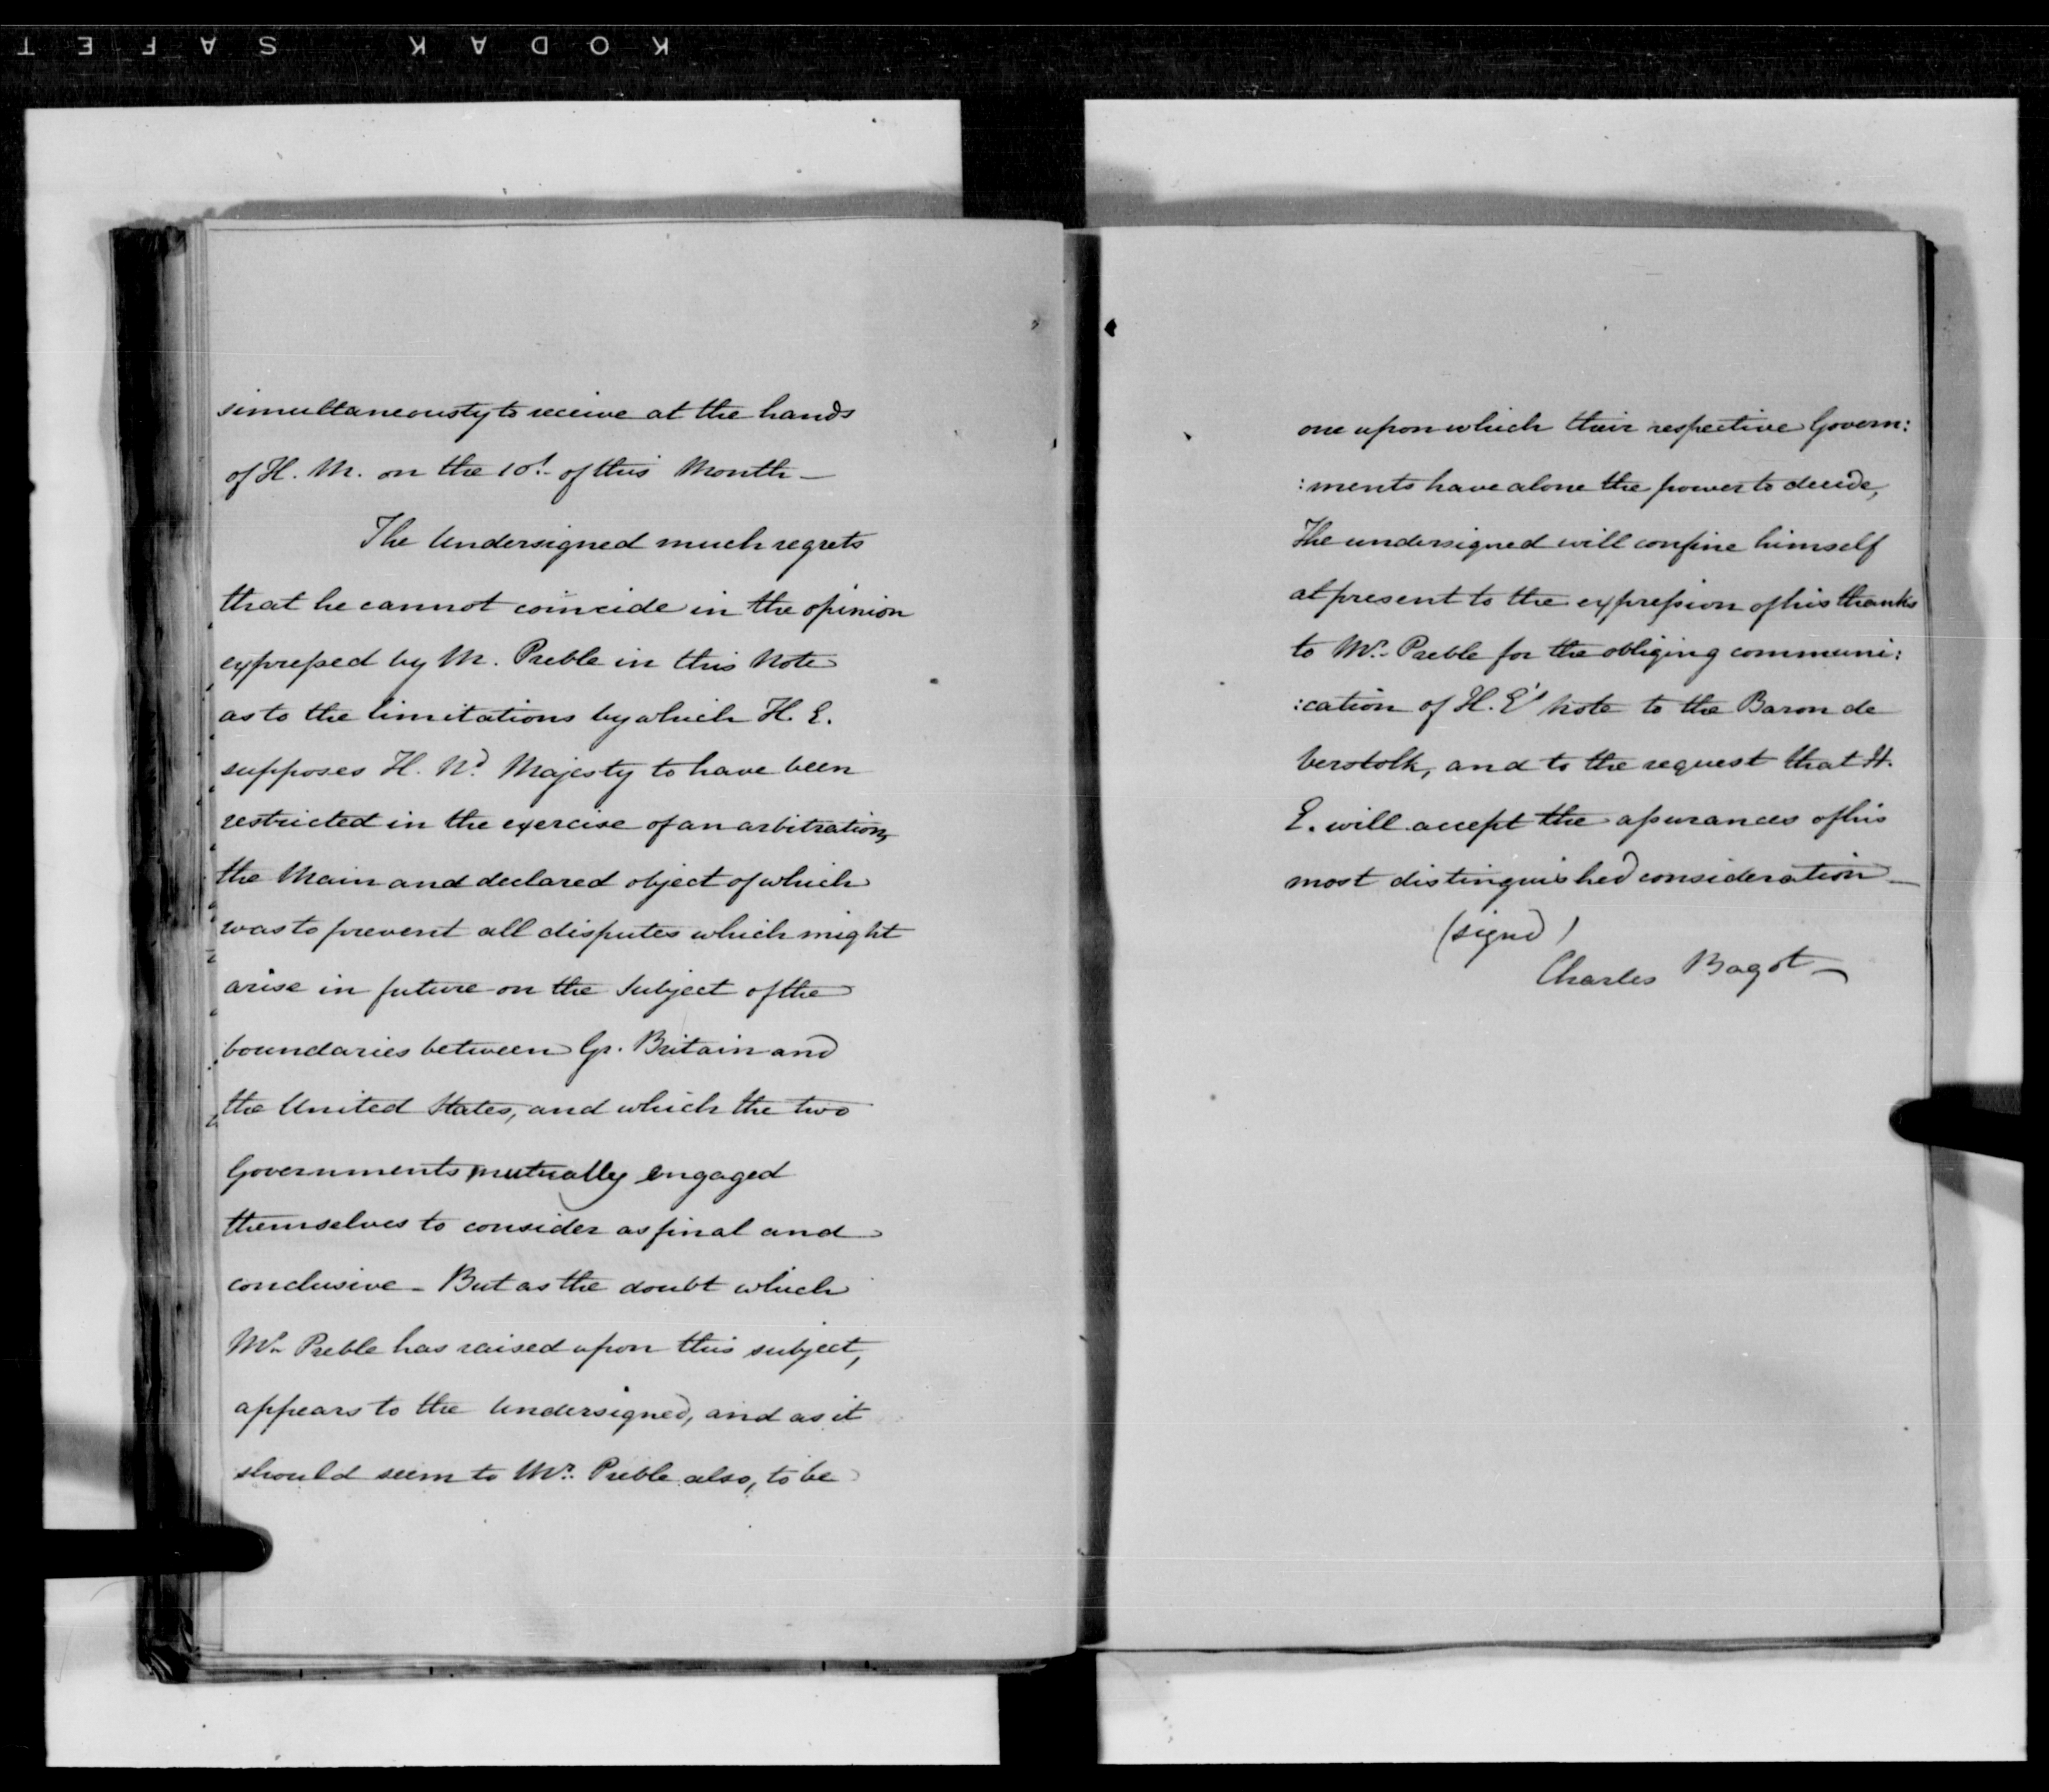 KODAK SAFET
simultaneously to receive at the hands
of H. M. on the 10t. of this Month —
The Undersigned much regrets
that he cannot coincide in the opinion
expressed by M. Preble in this Note
as to the limitations by which H. E.
supposes H. Nd. Majesty to have been
restricted in the exercise of an arbitration,
the Main and declared object of which
was to prevent all disputes which might
arise in future on the Subject of the
boundaries between Gr. Britain and
the United States, and which the two
Governments mutually engaged
themselves to consider as final and
conclusive — But as the doubt which
Mr. Preble has raised upon this subject,
appears to the Undersigned, and as it
should seem to Mr. Preble also, to be
one upon which their respective Govern:
:ments have alone the power to decide,
The undersigned will confine himself
at present to the expression of his thanks
to Mr. Preble for the obliging communi:
:cation of H. E's Note to the Baron de
Verstolk, and to the request that H.
E. will accept the assurances of his
most distinguished consideration —
(signd)
Charles Bagot —